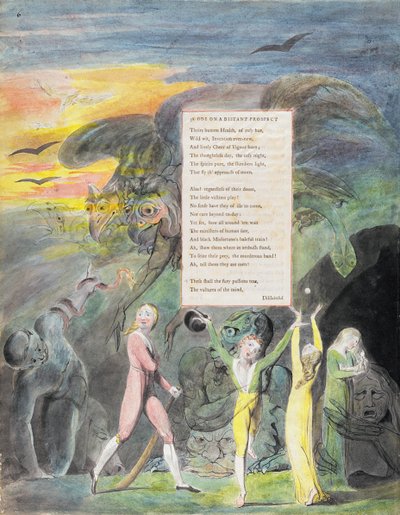 ODE ON A DISTANT PROSPECT
Theirs buxom Health, of rosy hue,
Wild wit, Invention ever-new,
And lively Chear of Vigour born;
The thoughtless day, the easy night,
The spirits pure, the slumbers light,
That fly th' approach of morn.
Alas! regardless of their doom,
The little victims play!
No sense have they of ills to come,
Nor care beyond to-day:
Yet see, how all around 'em wait
The ministers of human fate,
And black Misfortune's baleful train!
Ah, shew them where in ambush stand,
To seize their prey, the murderous band!
Ah, tell them they are men!
These shall the fury passions tear,
The vultures of the mind,
Disdainful